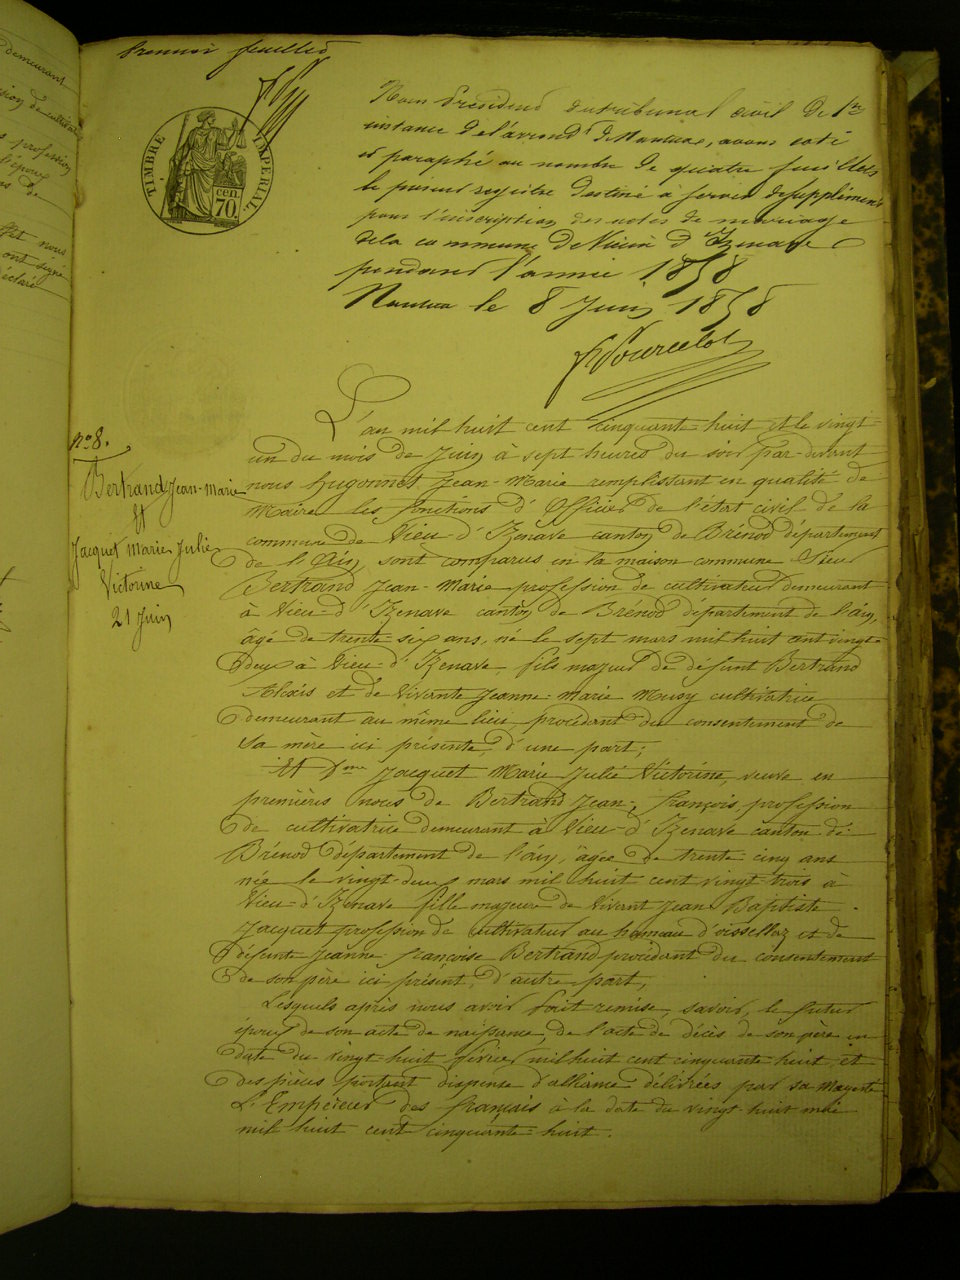 Premier feuillet
TIMBRE IMPERIAL
70 cen
Nous Président du tribunal civil de 1re
instance de l'arrondt de Nantua, avons coté
et paraphé au nombre de quatre feuillets
le présent registre destiné à servir de supplément
pour l'inscription des actes de mariage
de la commune de Vieu d'Izenave
pendant l'année 1858
Nantua le 8 Juin 1858
n° 8.
Bertrand Jean-Marie
Et
Jacquet Marie Julie
Victorine
21 Juin
L'an mil huit cent cinquante-huit et le vingt-
un du mois de Juin à sept heures du soir par-devant
nous Hugonnet Jean-Marie remplissant en qualité de
Maire les fonctions d'Officier de l'état civil de la
commune de Vieu-d'Izenave canton de Brénod département
de l'Ain, sont comparus en la maison commune Sieur
Bertrand Jean-Marie profession de cultivateur demeurant
à Vieu-d'Izenave canton de Brénod département de l'Ain,
âgé de trente six ans, né le sept mars mil huit cent vingt-
deux à Vieu-d'Izenave, fils majeur de défunt Bertrand
Alexis et de Vivante Jeanne-Marie Musy cultivatrice
demeurant au même lieu procédant du consentement de
sa mère ici présente, d'une part;
Et Dme Jacquet Marie Julie Victorine, veuve en
premières noces de Bertrand Jean-françois, profession
de cultivatrice demeurant à Vieu-d'Izenave canton de
Brénod département de l'Ain, âgée de trente cinq ans
née le vingt-deux mars mil huit cent vingt trois à
Vieu-d'Izenave fille majeure de Vivant Jean Baptiste
Jacquet profession de cultivateur au hameau d'oissellaz et de
défunte Jeanne françoise Bertrand procédant du consentement
de son père ici présent, d'autre part,
Lesquels après nous avoir fait remise, savoir, le futur
époux de son acte de naissance, de l'acte de décès de son père en
date du vingt huit février mil huit cent cinquante huit, et
des pièces portant dispense d'alliance délivrées par sa Majesté
L'Empereur des français à la date du vingt huit mai
mil huit cent cinquante-huit.